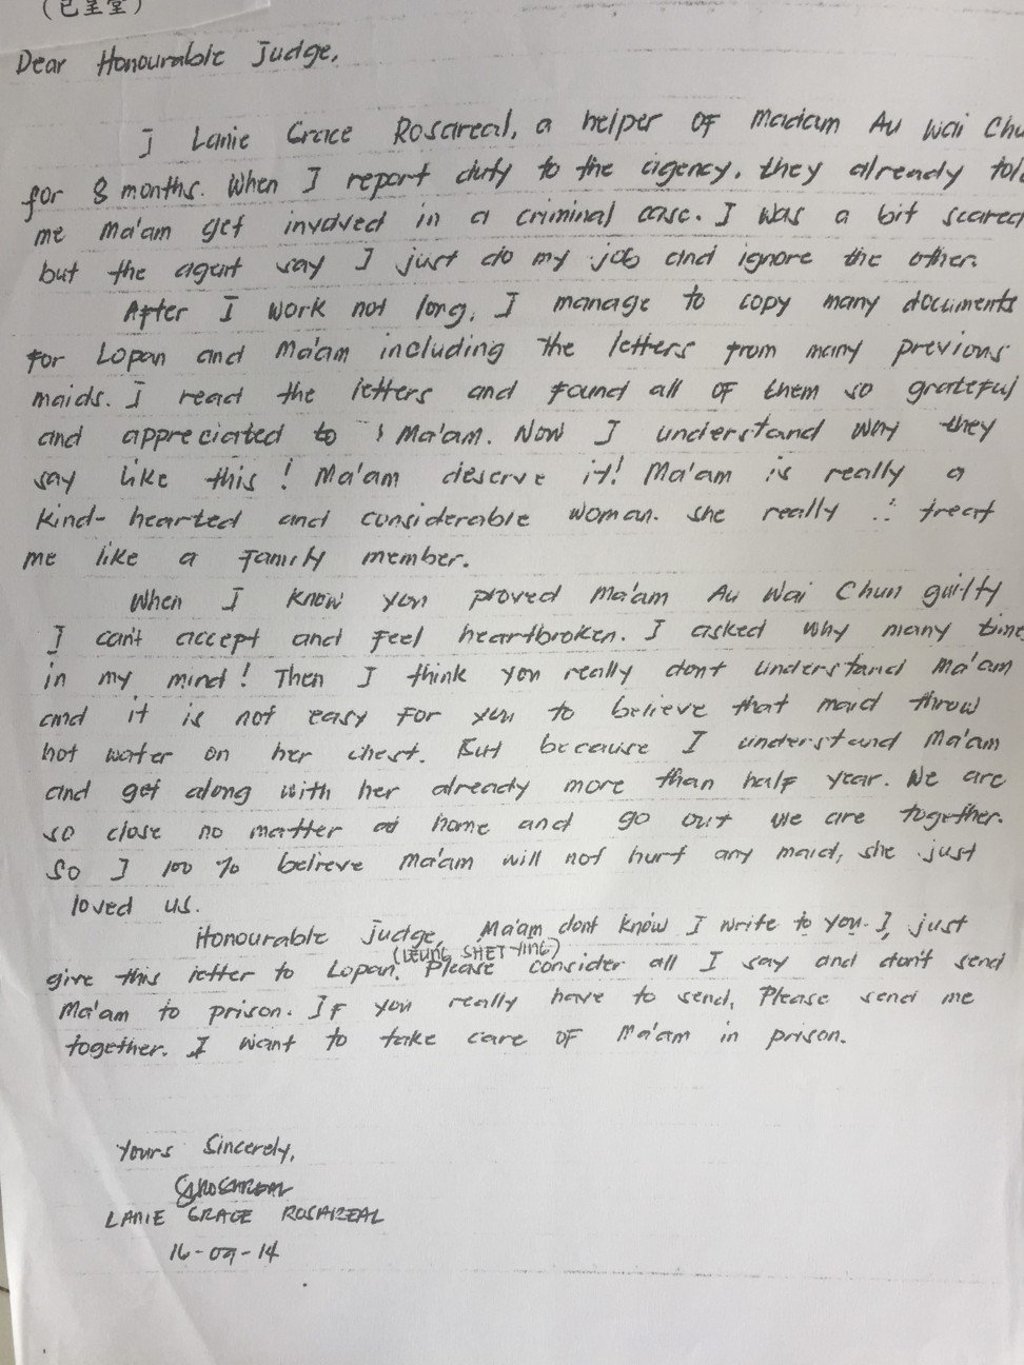 (已呈堂)
Dear Honourable Judge,
I Lanie Grace Rosareal, a helper of Madam Au Wai Chu
for 8 months. When I report duty to the agency, they already told
me Ma'am get involved in a criminal case. I was a bit scared
but the agent say I just do my job and ignore the other.
After I work not long, I manage to copy many documents
for Lopan and Ma'am including the letters from many previous
maids. I read the letters and found all of them so grateful
and appreciated to Ma'am. Now I understand why they
say like this! Ma'am deserve it! Ma'am is really a
kind-hearted and considerable woman. She really treat
me like a family member.
When I know you proved Ma'am Au Wai Chun guilty
I can't accept and feel heartbroken. I asked why many time
in my mind! Then I think you really dont understand Ma'am
and it is not easy for you to believe that maid throw
hot water on her chest. But because I understand Ma'am
and get along with her already more than half year. We are
so close no matter at home and go out we are together.
So I 100% believe Ma'am will not hurt any maid, she just
loved us.
Honourable judge, Ma'am dont know I write to you. I just
(LEUNG SHET YING)
give this letter to Lopan. Please consider all I say and don't send
Ma'am to prison. If you really have to send, Please send me
together. I want to take care of Ma'am in prison.
Yours Sincerely,
LANIE GRACE ROSAREAL
16-09-14